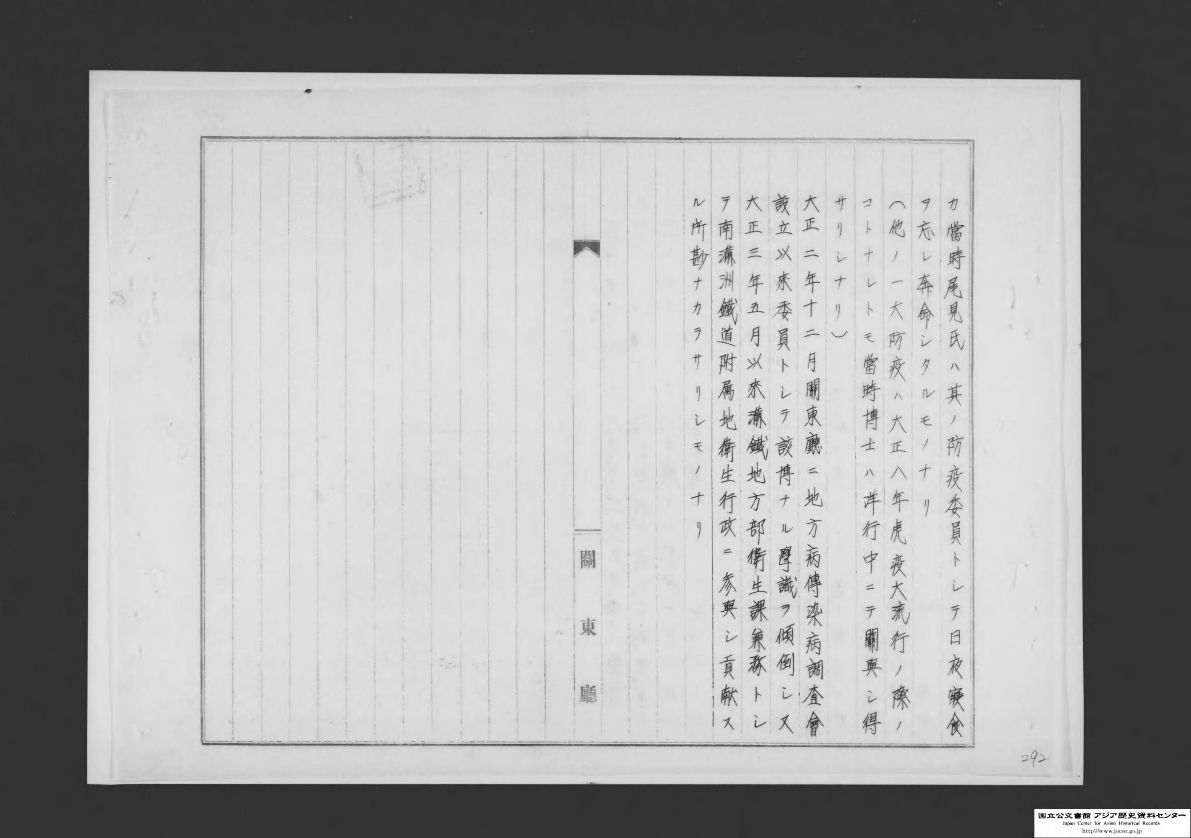 カ當時尾見氏ハ其ノ防疫委員トシテ日夜寢食
ヲ忘レ奔命シタルモノナリ
(他ノ一大防疫ハ大正八年虎疫大流行ノ際ノ
コトナレトモ當時博士ハ洋行中ニテ關與シ得
サリシナリ)
大正二年十二月關東廳ニ地方病傳染病調査會
設立以來委員トシテ該博ナル學識ヲ傾倒シ又
大正三年五月以來滿鐵地方部衛生課兼務トシ
テ南滿洲鐵道附属地衛生行政ニ参與シ貢献ス
ル所尠ナカラサリシモノナリ
關東廳
292
国立公文書館 アジア歴史資料センター
Japan Center for Asian Historical Records
http://www.jacar.go.jp